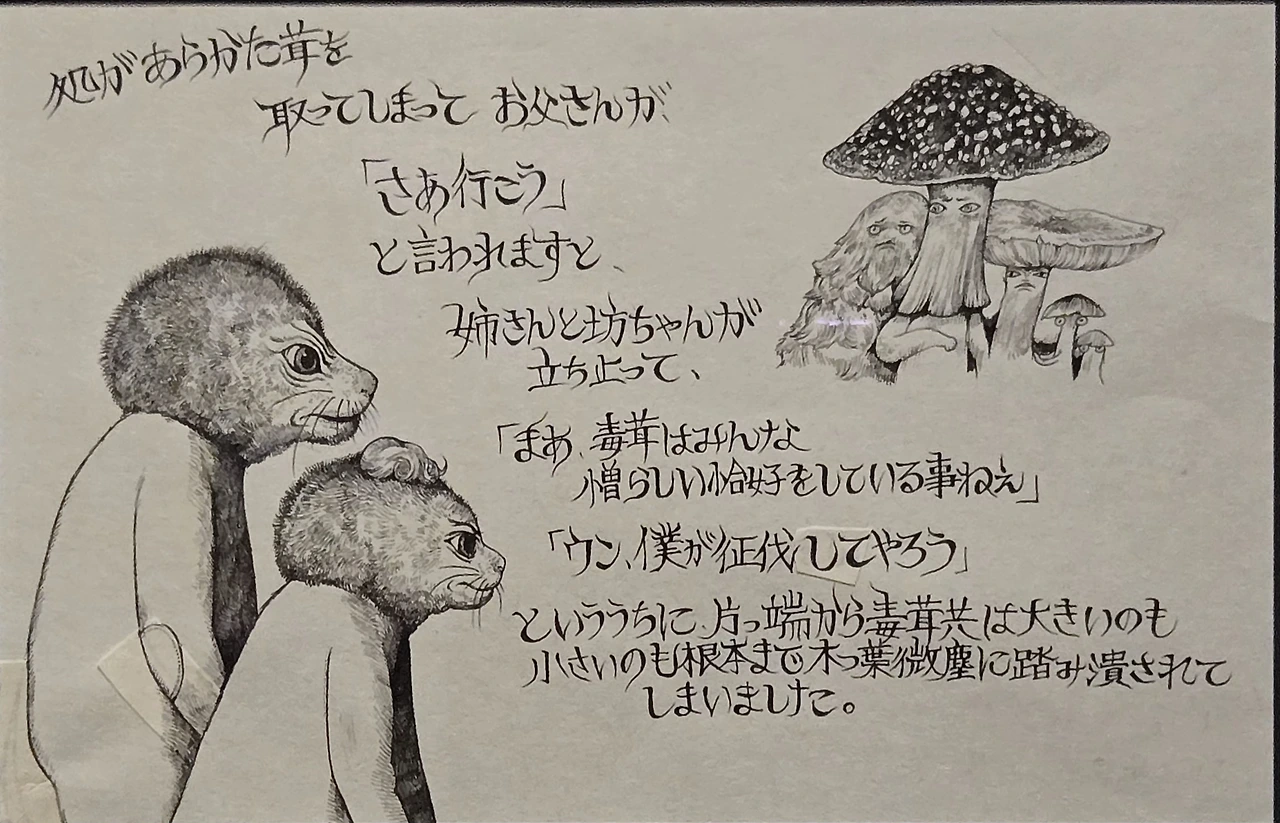 処があらかた茸を
取ってしまって お父さんが、
「さあ行こう」
と言われますと、
姉さんと坊ちゃんが
立ち止って、
「まあ、毒茸はみんな
憎らしい恰好をしている事ねえ」
「ウン、僕が征伐してやろう」
といううちに、片っ端から毒茸共は大きいのも
小さいのも根本まで木っ葉微塵に踏み潰されて
しまいました。